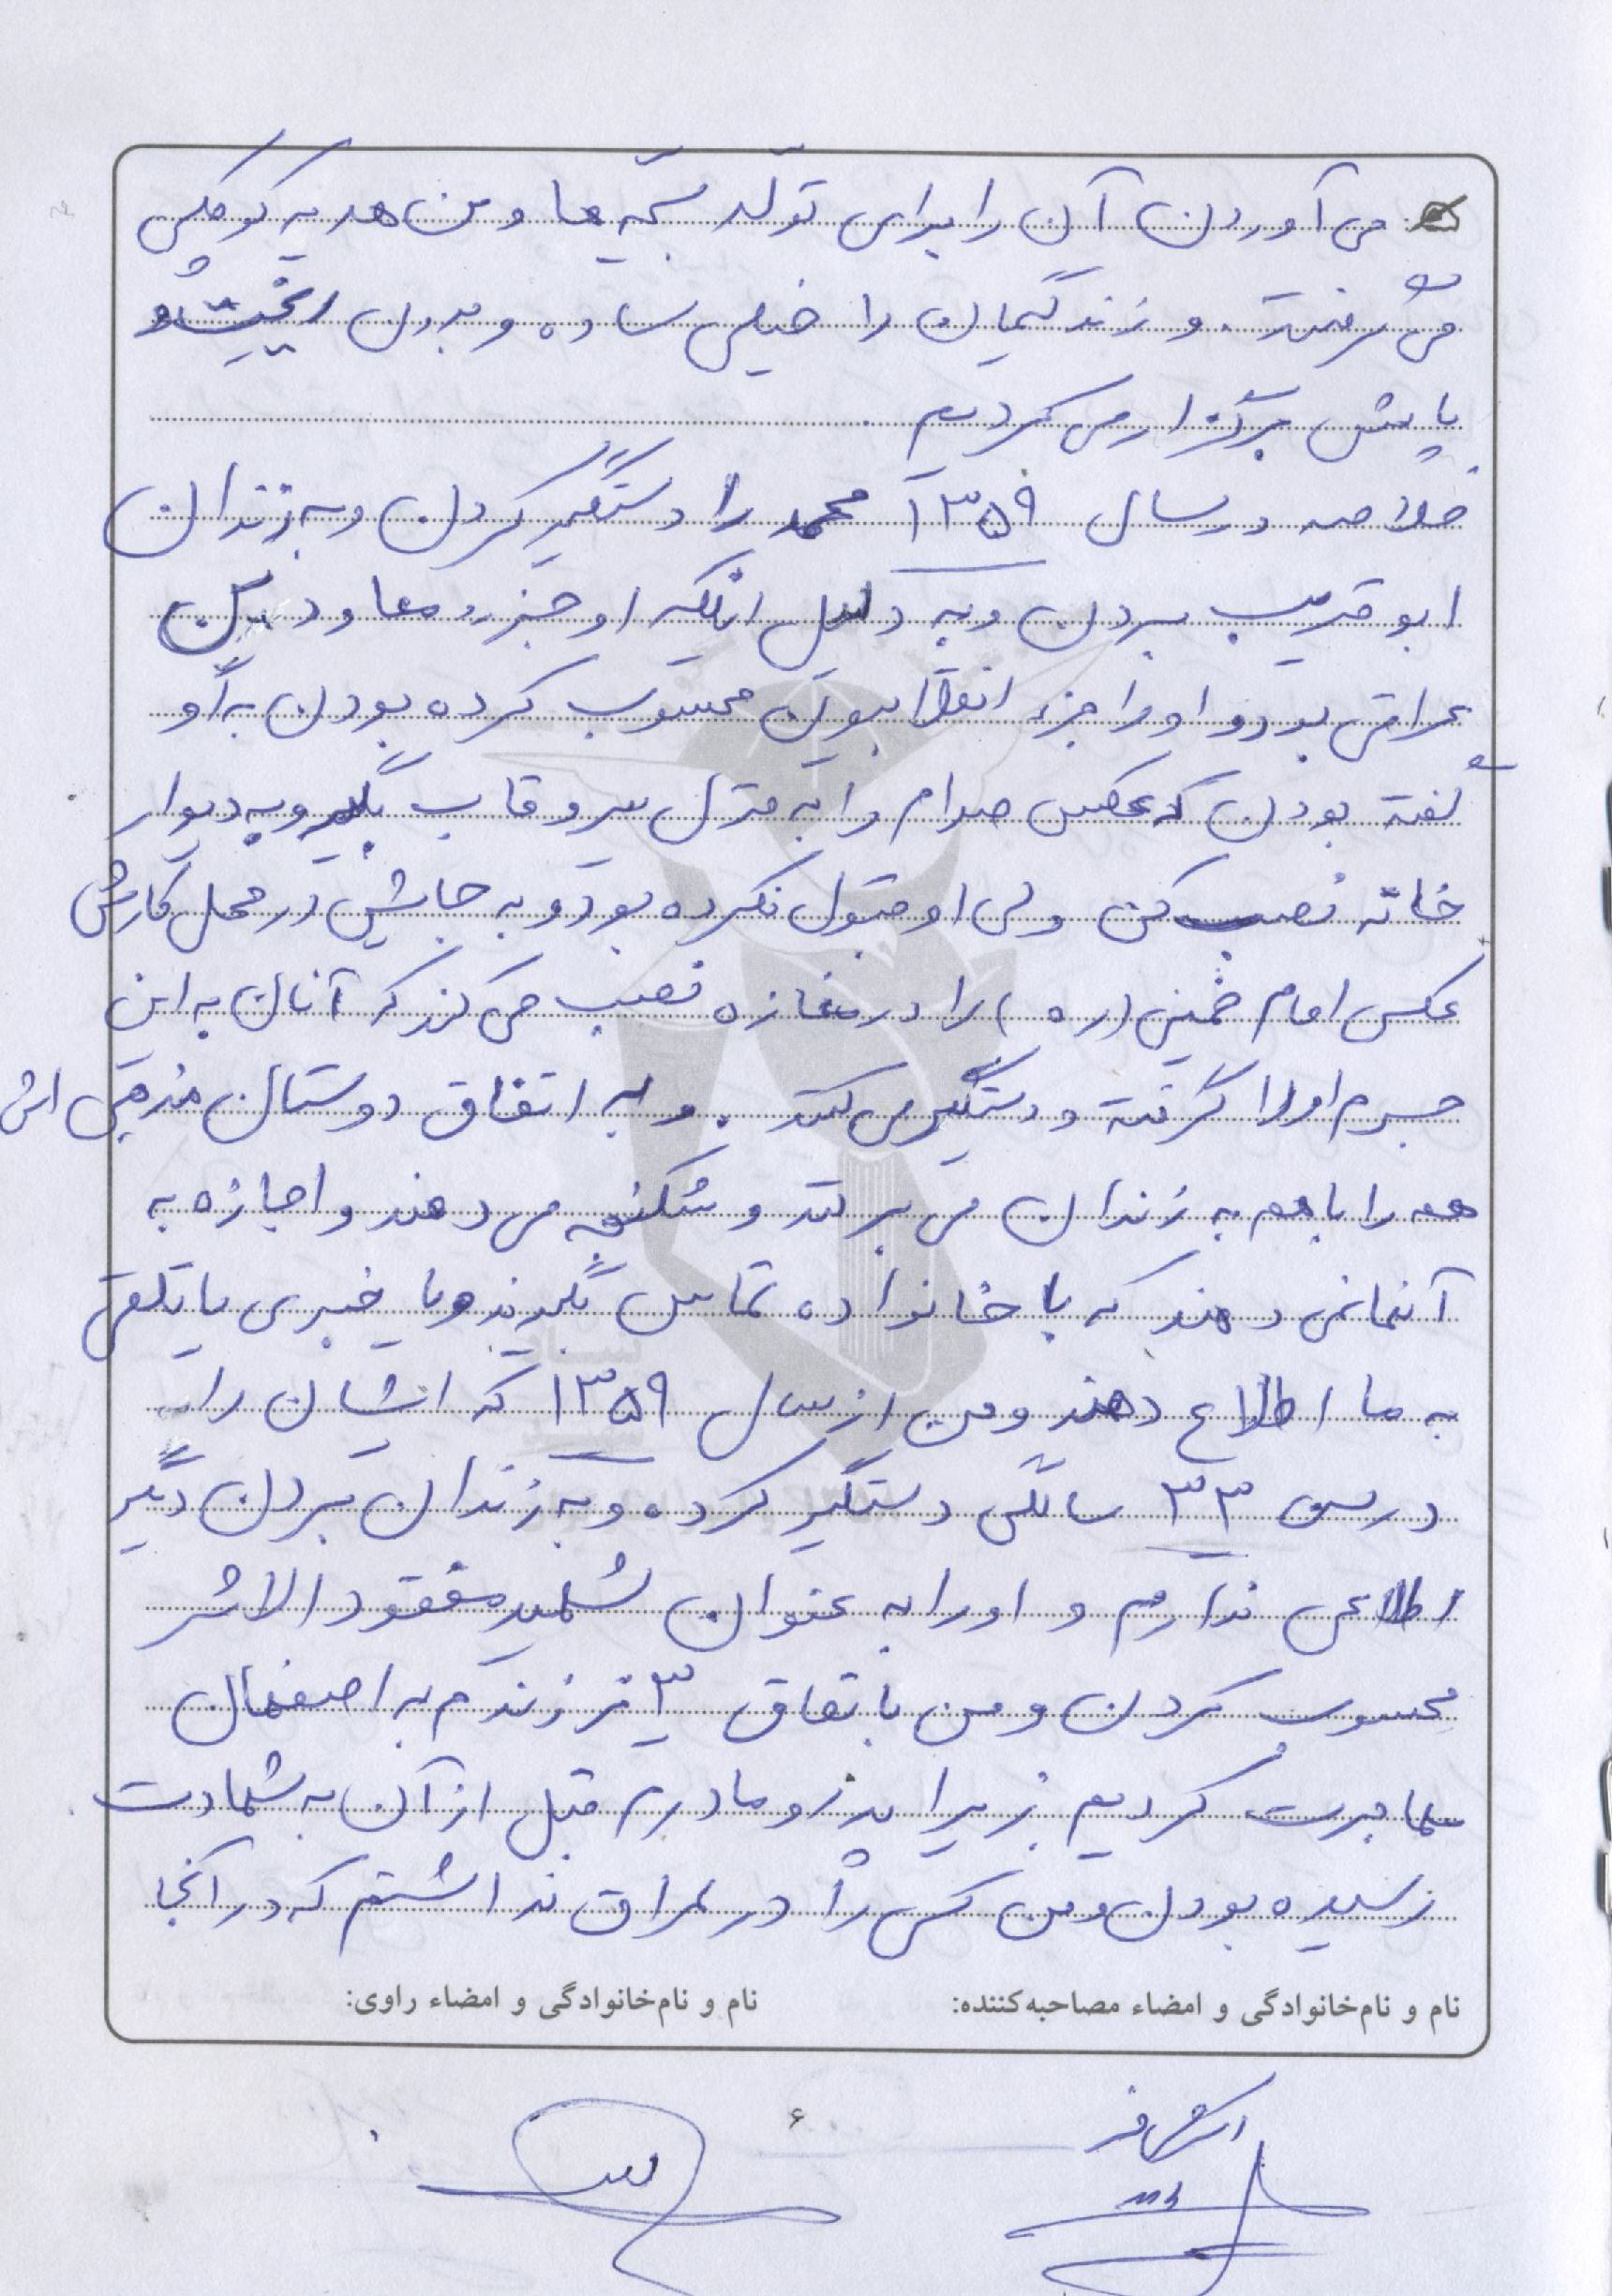 می آوردن آن را برای تولد بچه ها و من هدیه کوچکی
می گرفتند. و زندگیمان را خیلی ساده و بدون ریخت و
پاش برگزار می کردیم
خلاصه در سال ۱۳۵۹ محمد را دستگیر کردن و به زندان
ابو قریب بردن و به دلیل انکه او جزء معاودین
عراقی بود و او را جزء انقلابیون محسوب کرده بودن به او
گفته بودن که عکس صدام را به منزل ببر و قاب بگیر و به دیوار
خانه نصب کن ولی او قبول نکرده بود و به جایش در محل کارش
عکس امام خمینی (ره) را در مغازه نصب می کند که آنان به این
جرم او را گرفته و دستگیر می کنند. و به اتفاق دوستان مذهبی اش
همه را با هم به زندان می برند و شکنجه می دهند و اجازه به
آنها نمی دهند که با خانواده تماس بگیرند و یا خبری یا تلفنی
به ما اطلاع دهند و من از سال ۱۳۵۹ که ایشان را
در سن ۳۳ سالگی دستگیر کرده و به زندان بردن دیگر
اطلاعی ندارم و او را به عنوان شهید مفقود الاثر
محسوب کردن و من با تفاق ۳ فرزندم به اصفهان
مهاجرت کردیم زیرا پدر و مادرم قبل از آن به شهادت
رسیده بودن و من کسی را در عراق نداشتم که در آنجا
نام و نام‌خانوادگی و امضاء مصاحبه‌کننده:
نام و نام‌خانوادگی و امضاء راوی:
۶